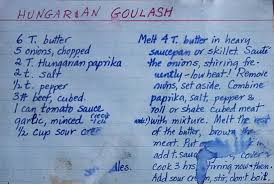 HUNGARIAN GOULASH
6 T. butter
5 onions, chopped
2 T. Hungarian paprika
2 t. salt
1/2 t. pepper
3# beef, cubed
1 can tomato sauce
garlic, minced
1/2 cup sour cre
Melt 4 T. butter in heavy
saucepan or skillet. Sauté
the onions, stirring fre-
quently - low heat! Remove
onions, set aside. Combine
paprika, salt, pepper &
roll or shake cubed meat
with mixture. Melt the rest
of the butter, brown the
meat. Put
add t. sau cover &
cook 3 hrs stirring now & then.
Add sour cream, stir, don't boil.
les.